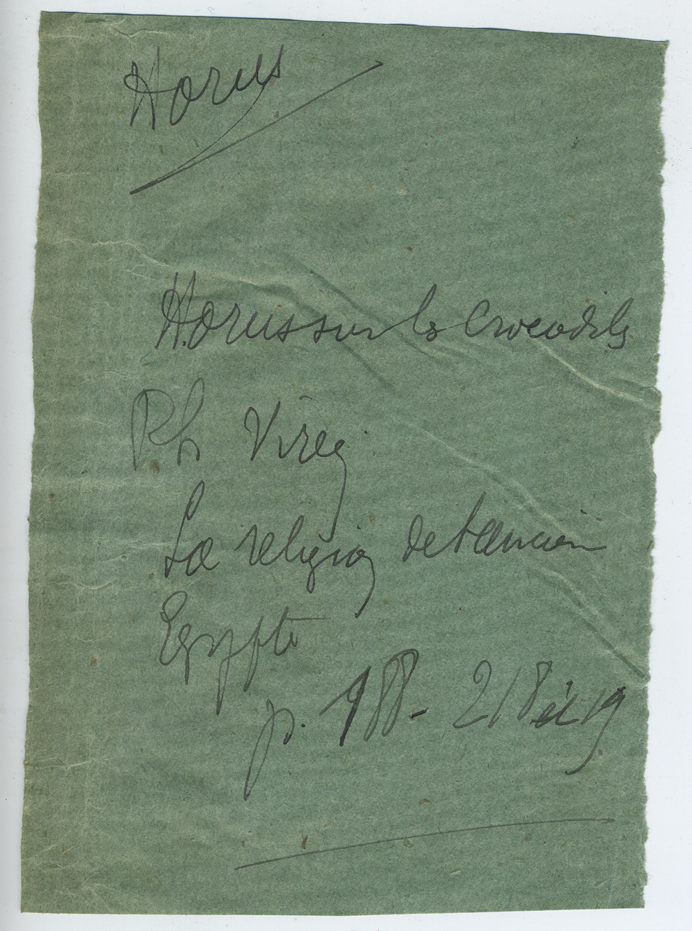 Horus
Horus sur les Crocodiles
Ph Virey
La religion de l'ancienne
Egypte
p. 188 - 218 et 19